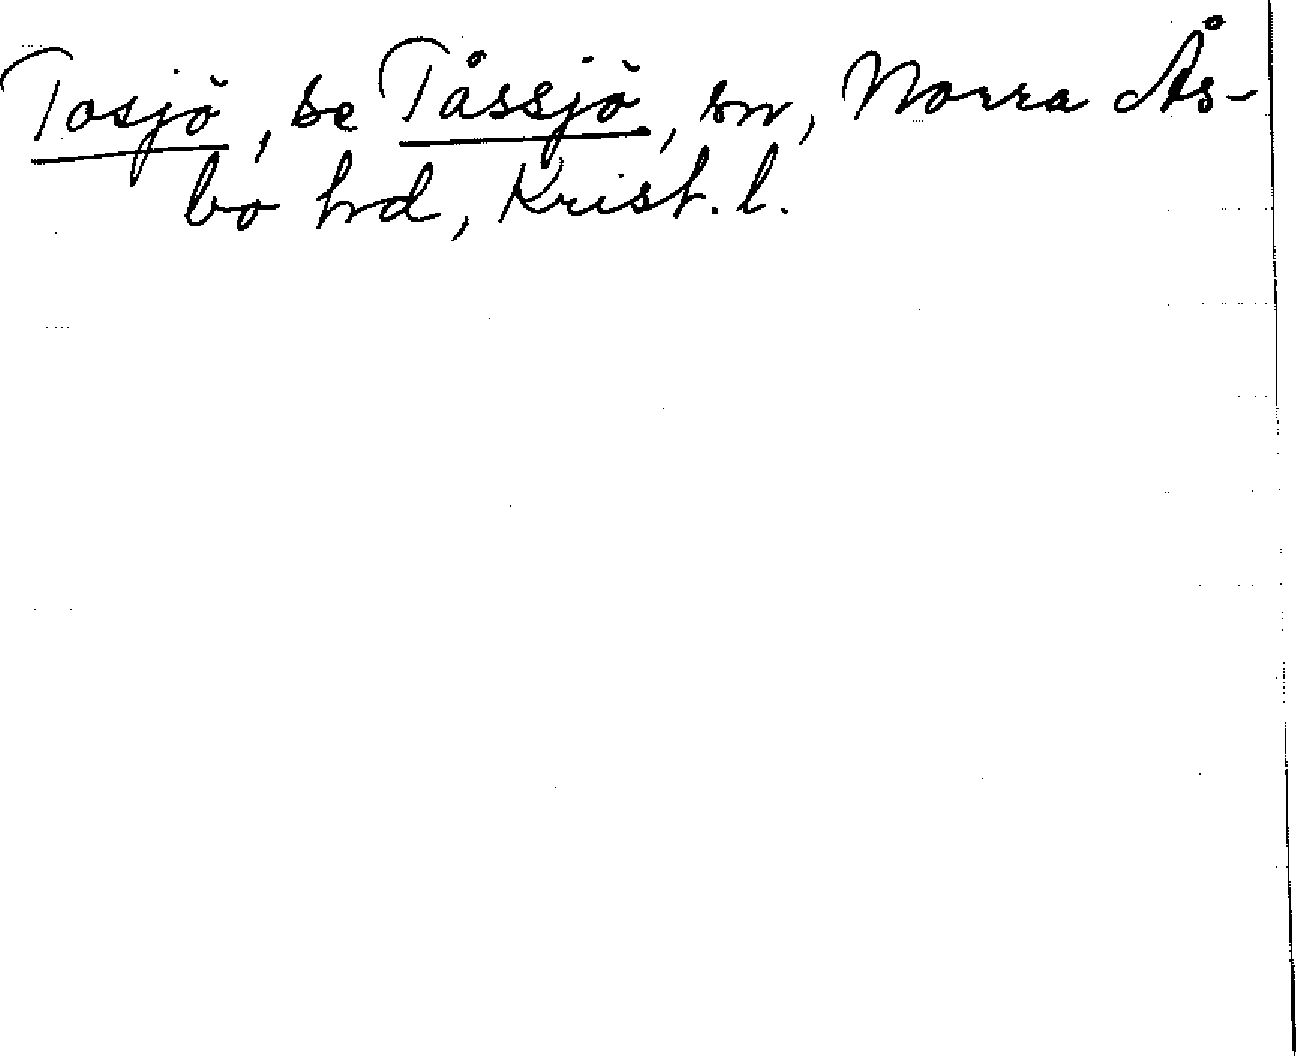 Tosjö, se Tåssjö, sn, Norra Ås-
bo hd, Krist. l.